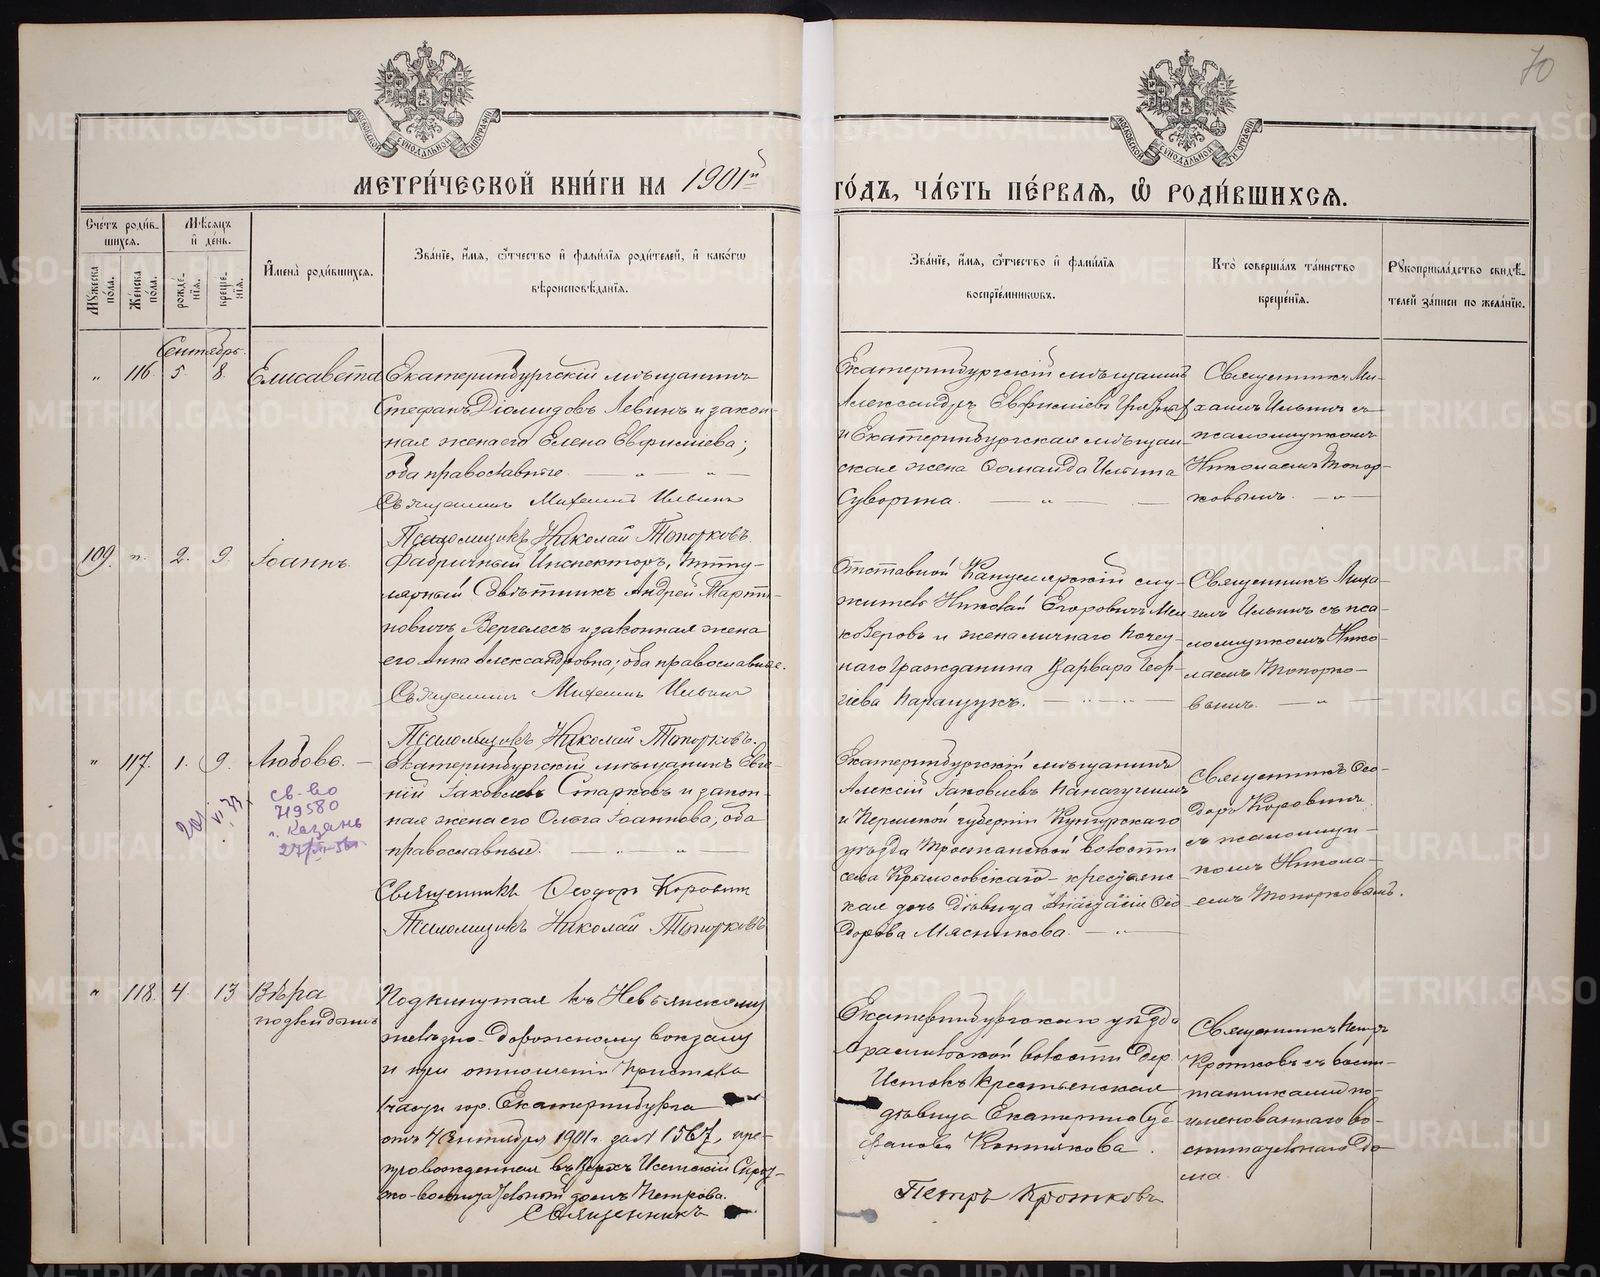 70
МОСКОВСКОЙ СИНОДАЛЬНОЙ ТИПОГРАФІИ
МОСКОВСКОЙ СИНОДАЛЬНОЙ ТИПОГРАФІИ
МЕТРИ́ЧЕСКОЙ КНИ́ГИ НА 1901й
ГО́ДЪ, ЧА́СТЬ ПЕ́РВАѦ, Ѡ РОДИ́ВШИХСѦ.
Сче́тъ роди́в-
шихся.
Мѣ́сяцъ
и҆ де́нь.
Мꙋ́жеска
по́ла.
Же́нска
по́ла.
рожде́-
нїя.
креще́-
нїя.
И҆мена̀ роди́вшихся.
Зва́нїе, и҆́мя, ѻ҆́тчество и҆ фамилїя роди́телей, и҆ како́гѡ
вѣроисповѣ́данїя.
Зва́нїе, и҆́мя, ѻ҆́тчество и҆ фами́лїя
воспрїе́мникѡвъ.
Кто̀ соверша́лъ та́инство
креще́нїя.
Рꙋкоприкла́дство свидѣ́-
телей за́писи по жела́нїю.
Сентябрь
" 116. 5. 8. Елисавета
Екатеринбургскій мѣщанинъ
Стефанъ Діомидовъ Левинъ и закон-
ная жена его Елена Евфиміева;
оба православные — " — " —
Священникъ Михаилъ Ильинъ
Псаломщикъ Николай Топорковъ.
Екатеринбургскій мѣщанинъ
Александръ Евфиміевъ
и Екатеринбургская мѣщан-
ская жена Ильина
Суворина. — " —
Священникъ Ми-
хаилъ Ильинъ съ
псаломщикомъ
Николаемъ Топор-
ковымъ. — " —
109. ". 2. 9. Іоаннъ.
Фабричный Инспекторъ, Титу-
лярный Совѣтникъ Андрей Марти-
новичъ Вергелесъ и законная жена
его Анна Александровна; оба православные.
Священникъ Михаилъ Ильинъ
Псаломщикъ Николай Топорковъ.
Отставной Канцелярскій слу-
житель Николай Егоровичъ
и жена личнаго Почет-
наго Гражданина Варвара Геор-
гіева Паращукъ. — " —
Священникъ Миха-
илъ Ильинъ съ пса-
ломщикомъ Нико-
лаемъ Топорко-
вымъ. — "
" 117. 1. 9. Любовь. —
св-во
719580
г. Казань
Екатеринбургскій мѣщанинъ Евге-
ній Іаковлевъ Старковъ и закон-
ная жена его Ольга Іоаннова, оба
православные. — " —
Священникъ Ѳеодоръ Коровинъ
Псаломщикъ Николай Топорковъ
Екатеринбургскій мѣщанинъ
Алексій Іаковлевъ
и Пермской губерніи Кунгурскаго
уѣзда волости
села Крылосовскаго крестьянс-
кая дочь дѣвица Анастасія Ѳео-
дорова Мясникова. — " —
Священникъ Ѳео-
доръ Коровинъ
съ псаломщи-
комъ Никола-
емъ Топорковымъ.
" 118. 4. 13 Вѣра
подкидышъ
Подкинутая къ Невьянскому
желѣзно-дорожному вокзалу
и при отношеніи Пристава
части гор. Екатеринбурга
отъ 4 Сентября 1901 г. за № 1567, пре-
провожденная въ Верхъ Исетскій Сиро-
по-воспитательный домъ Петрова.
Священникъ
Петръ Кротковъ
Екатеринбургскаго уѣзда
Арамильской волости дер.
Истокъ крестьянская
дѣвица Екатерина Сте-
фанова .
Священникъ Петръ
Кротковъ съ воспи-
танниками по-
именованнаго во-
спитательнаго до-
ма.
METRIKI.GASO-URAL.RU